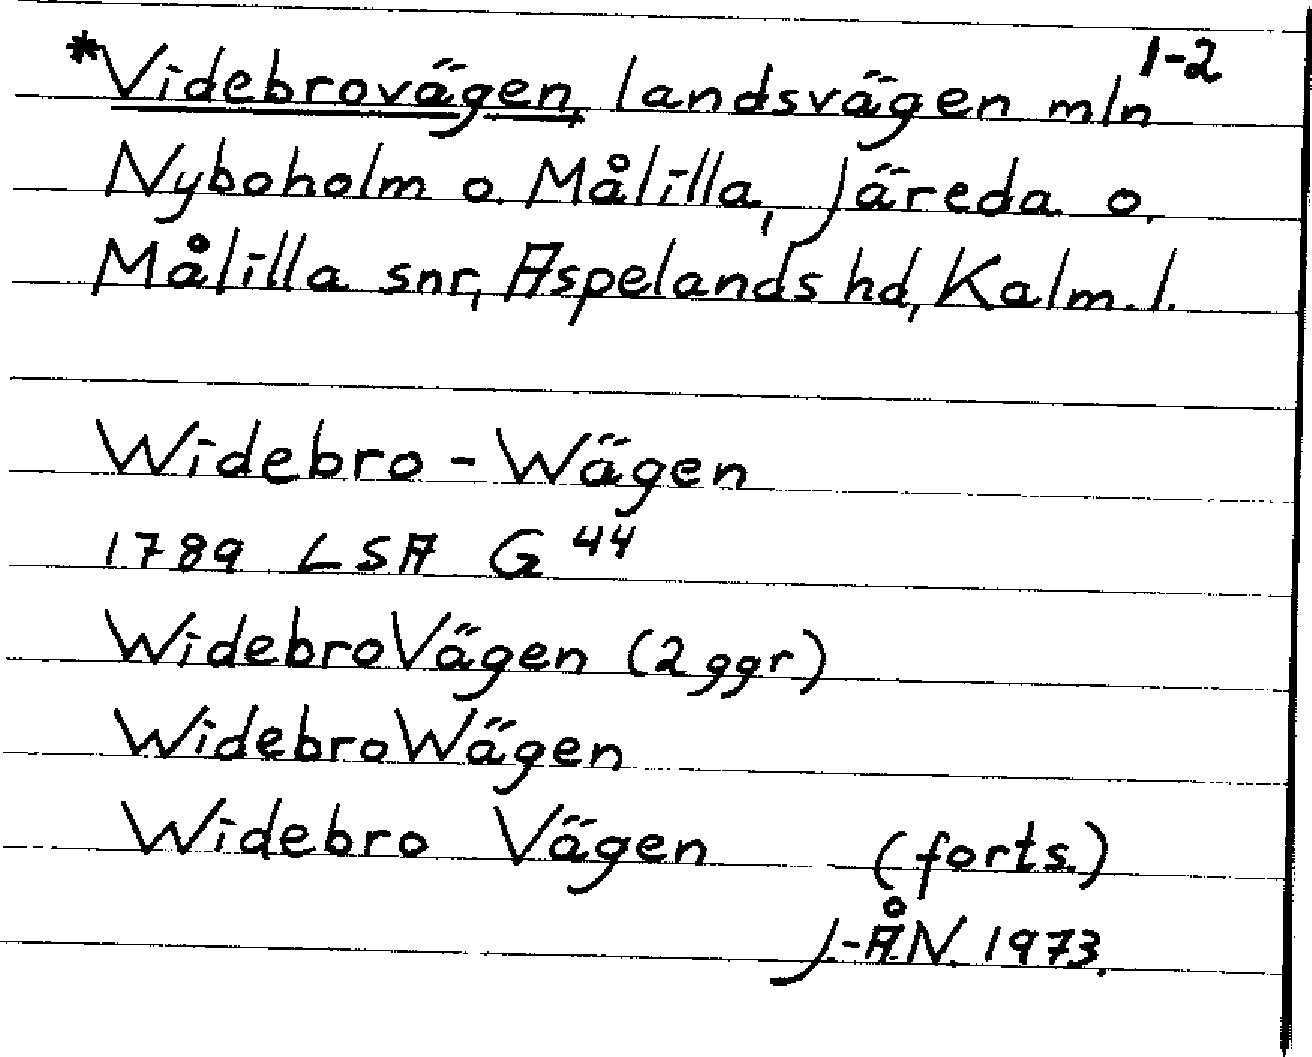 1-2
*Videbrovägen, landsvägen mln
Nyboholm o. Målilla, Järeda o.
Målilla snr, Aspelands hd, Kalm. l.
Widebro - Wägen
1789 LSA G 44
WidebroVägen (2 ggr)
WidebroWägen
Widebro Vägen (forts.)
J.-Å.N. 1973.